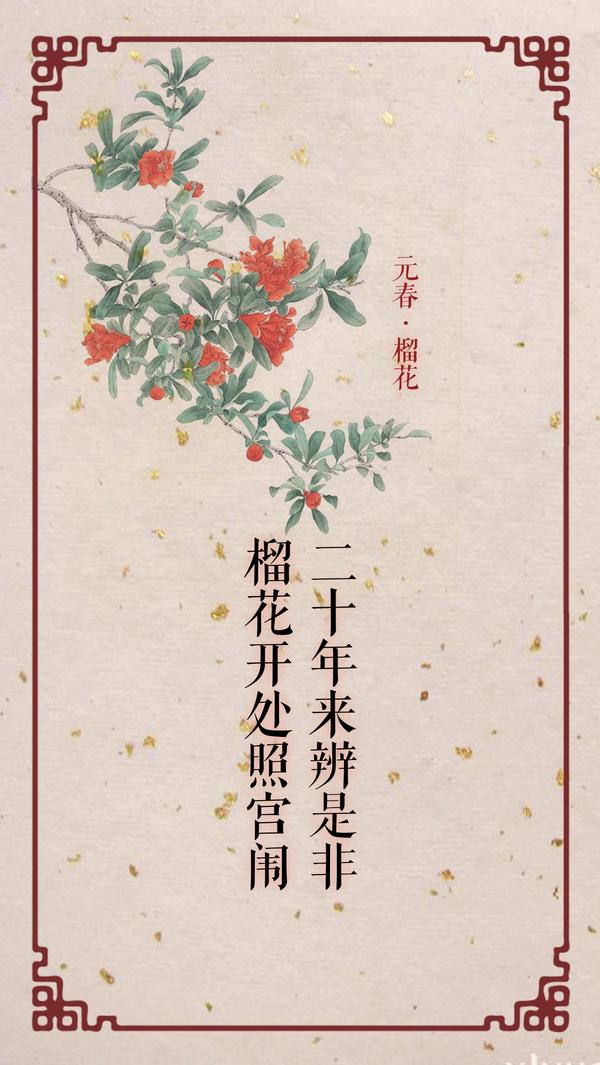 元春·榴花
二十年来辨是非
榴花开处照宫闹